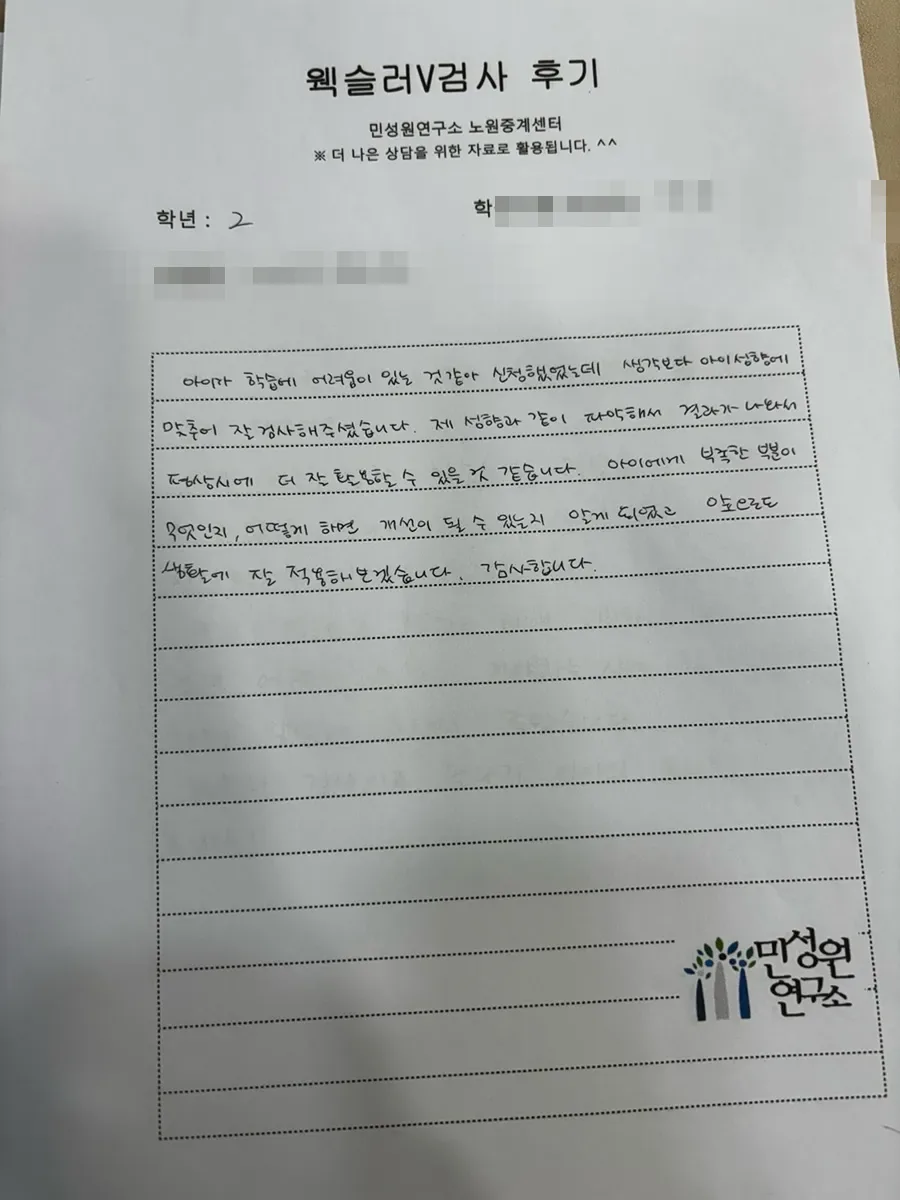 웩슬러V검사 후기
민성원연구소 노원중계센터
※ 더 나은 상담을 위한 자료로 활용됩니다. ^^
학년 : 2
학
아이가 학습에 어려움이 있는 것 같아 신청했었는데 생각보다 아이성향에
맞추어 잘 검사해주셨습니다. 제 성향과 같이 파악해서 결과가 나와서
평상시에 더 잘 활용할 수 있을 것 같습니다. 아이에게 부족한 부분이
무엇인지, 어떻게 하면 개선이 될 수 있는지 알게 되었고 앞으로도
생활에 잘 적용해보겠습니다. 감사합니다.
민성원
연구소